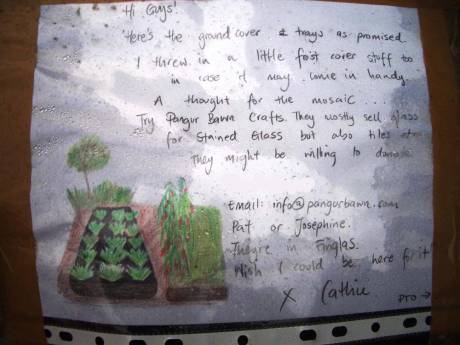 Hi Guys!
Here's the ground cover & trays as promised.
I threw in a little frost cover stuff too
in case it may come in handy.
A thought for the mosaic ....
Try Pangur Bawn Crafts. They mostly sell glass
for Stained Glass but also tiles etc.
They might be willing to donate.
Email: info@pangurbawn.com
Pat or Josephine.
They're in Finglas.
Wish I could be here for it!
X Cathie
PTO →